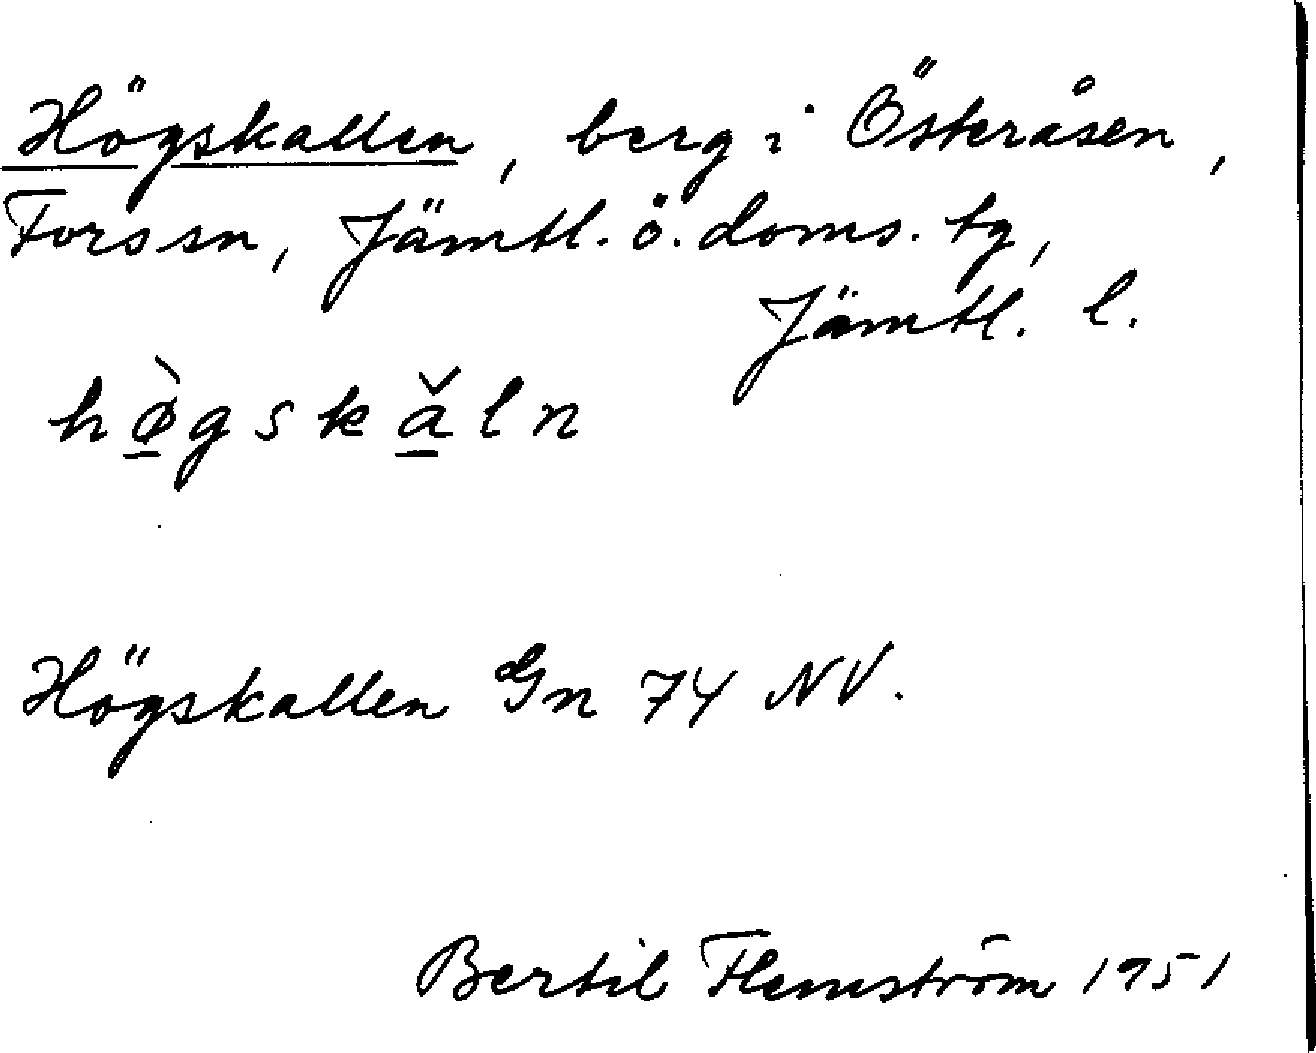 Högskallen, berg i Österåsen,
Fors sn, Jämtl. ö. doms. tg,
Jämtl. l.
hø̱̀gskǎ̱ln
Högskallen Gn 74 NV.
Bertil Flemström 1951